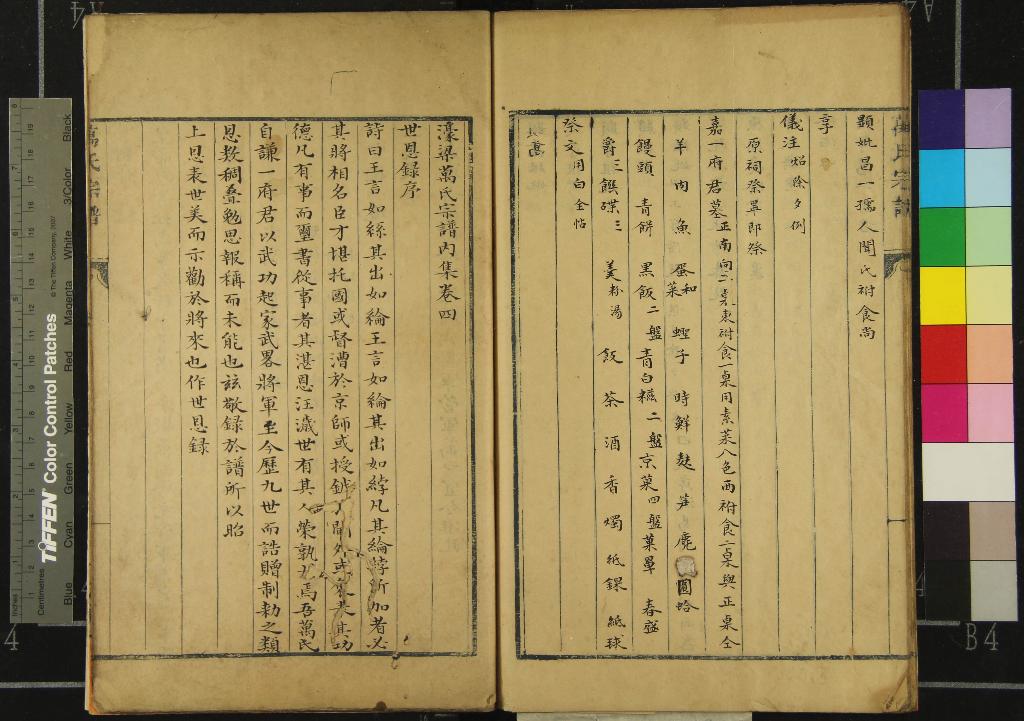 顯妣昌一孺人聞氏祔食尚
享
儀注焰除夕例
原祠祭畢即祭
嘉一府君墓正南向二桌東祔食一桌用素菜八色西祔食二桌與正桌仝
羊肉 魚 蛋和菜 蟶子 時鮮 麸 笋 圓蛤
饅頭 青餅 黑飯二盤 青白糍二盤 京菓四盤 菓單 春盛
爵三 饌碟三 羹粉湯 飯 茶 酒 香 燭 紙錁 紙球
祭文用白全帖
濠梁萬氏宗譜內集卷四
世恩録序
詩曰王言如絲其出如綸王言如綸其出如綍凡其綸綍所加者必
其將相名臣才堪托國或督漕於京師或授鉞於閫外其功
德凡有事而璽書從事者其湛恩汪濊世有其人榮孰尤焉吾萬氏
自謙一府君以武功起家武畧將軍至今歷九世而誥贈制勅之類
恩数稠疊勉思報稱而未能也玆敬録於譜所以昭
上恩表世美而示勸於將來也作世恩録
萬氏宗譜
TIFFEN Color Control Patches
© The Tiffen Company, 2007
Blue Cyan Green Yellow Red Magenta White 3/Color Black
Inches
Centimetres
B4
A4